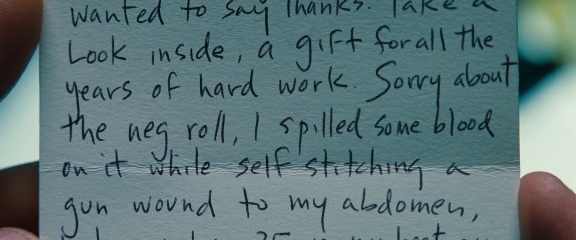 Wanted to say thanks. Take a
Look inside, a gift for all the
years of hard work. Sorry about
the neg roll, I spilled some blood
on it while self stitching a
gun wound to my abdomen,
25